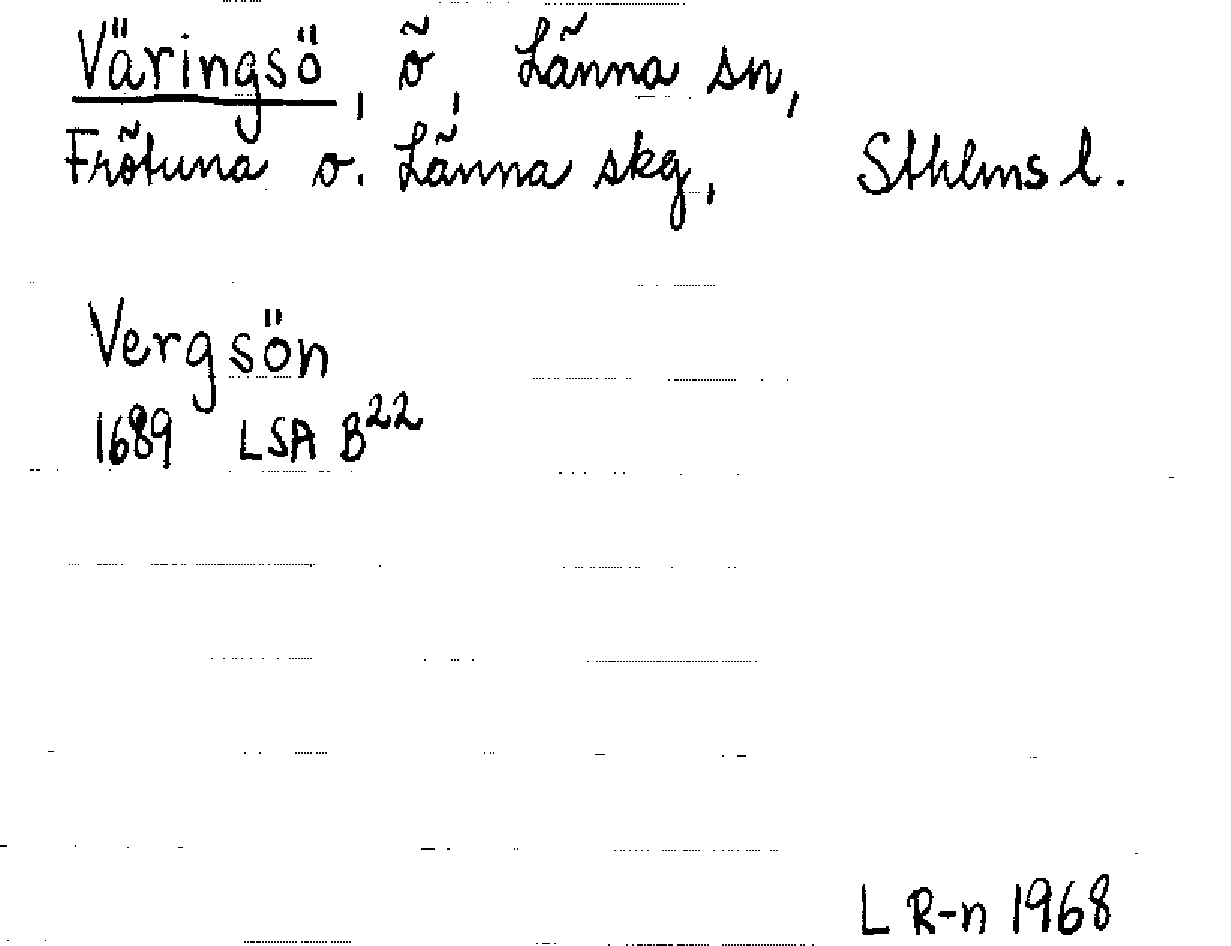 Väringsö, ö, Länna sn,
Frötuna o. Länna skg, Sthlms l.
Vergsön
1689 LSA B22
L R-n 1968